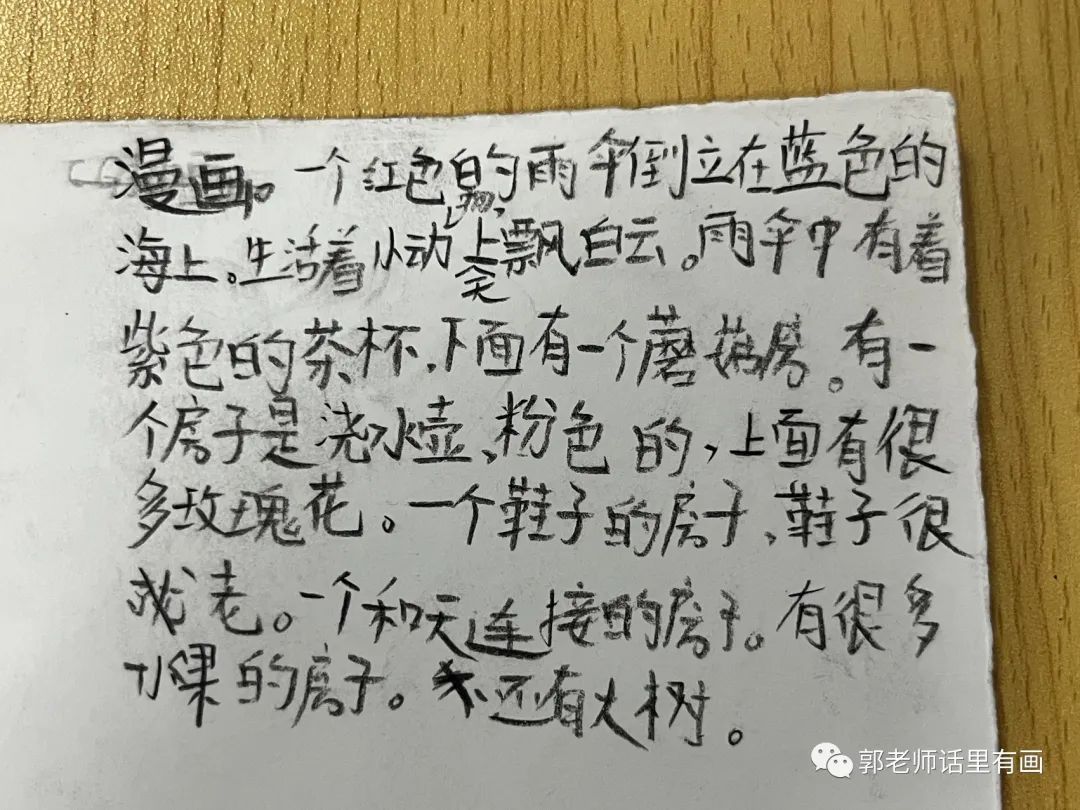 漫画。一个红色的雨伞倒立在蓝色的
海上。生活着小动物,天上飘白云。雨伞中有着
紫色的茶杯,下面有一个蘑菇房。有一
个房子是浇水壶、粉色的,上面有很
多玫瑰花。一个鞋子的房子、鞋子很
老。一个和天连接的房子。有很多
的房子。还有大树。
郭老师话里有画